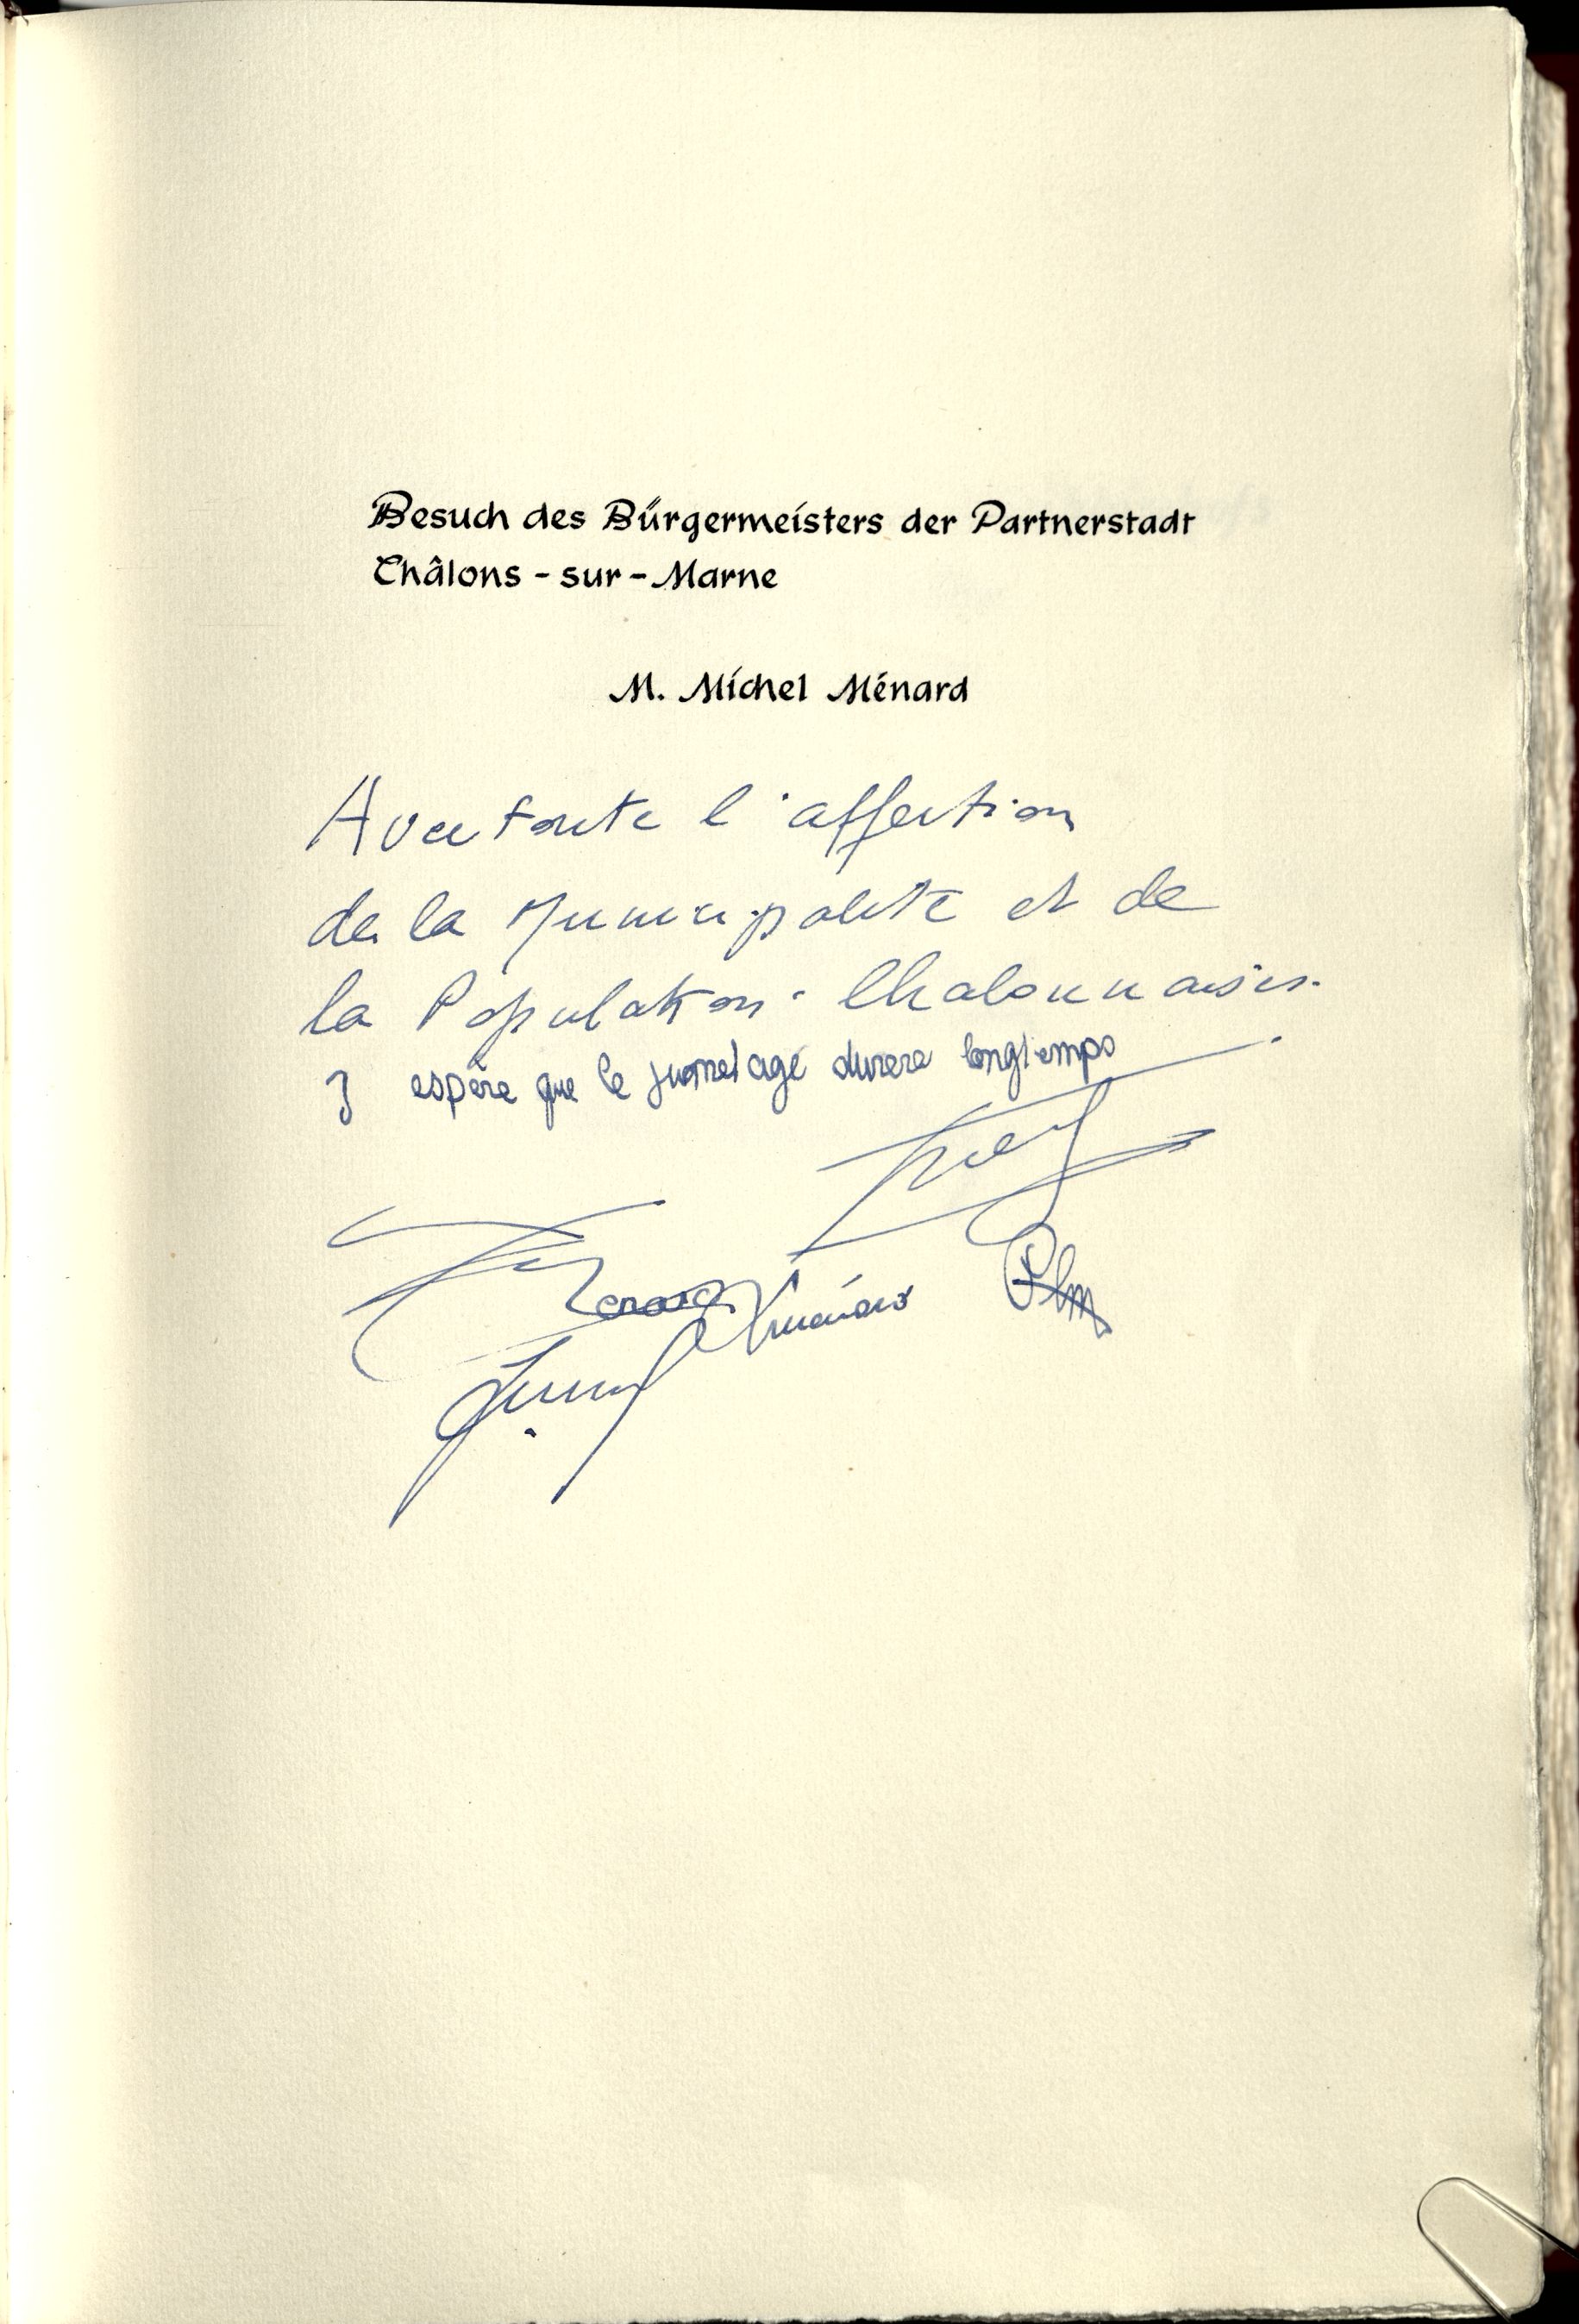 Besuch des Bürgermeisters der Partnerstadt
Châlons-sur-Marne
M. Michel Ménard
Avec toute l'affection
de la Municipalité et de
la Population Chalonnaises.
J espère que le jumelage durera longtemps